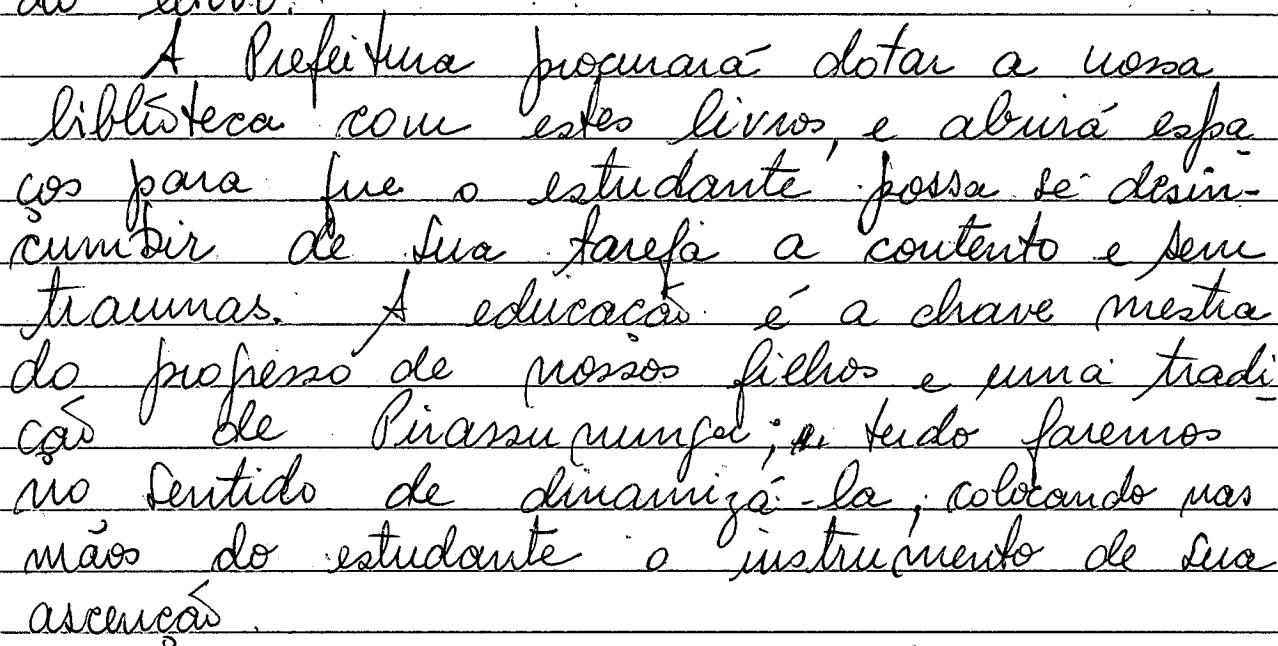 do livro.
A Prefeitura procurará dotar a nossa
biblioteca com estes livros, e abrirá espa
ços para que o estudante possa se desin-
cumbir de sua tarefa a contento e sem
traumas. A educação é a chave mestra
do progresso de nossos filhos e uma tradi
ção de Pirassununga; e tudo faremos
no sentido de dinamizá-la, colocando nas
mãos do estudante o instrumento de sua
ascenção.